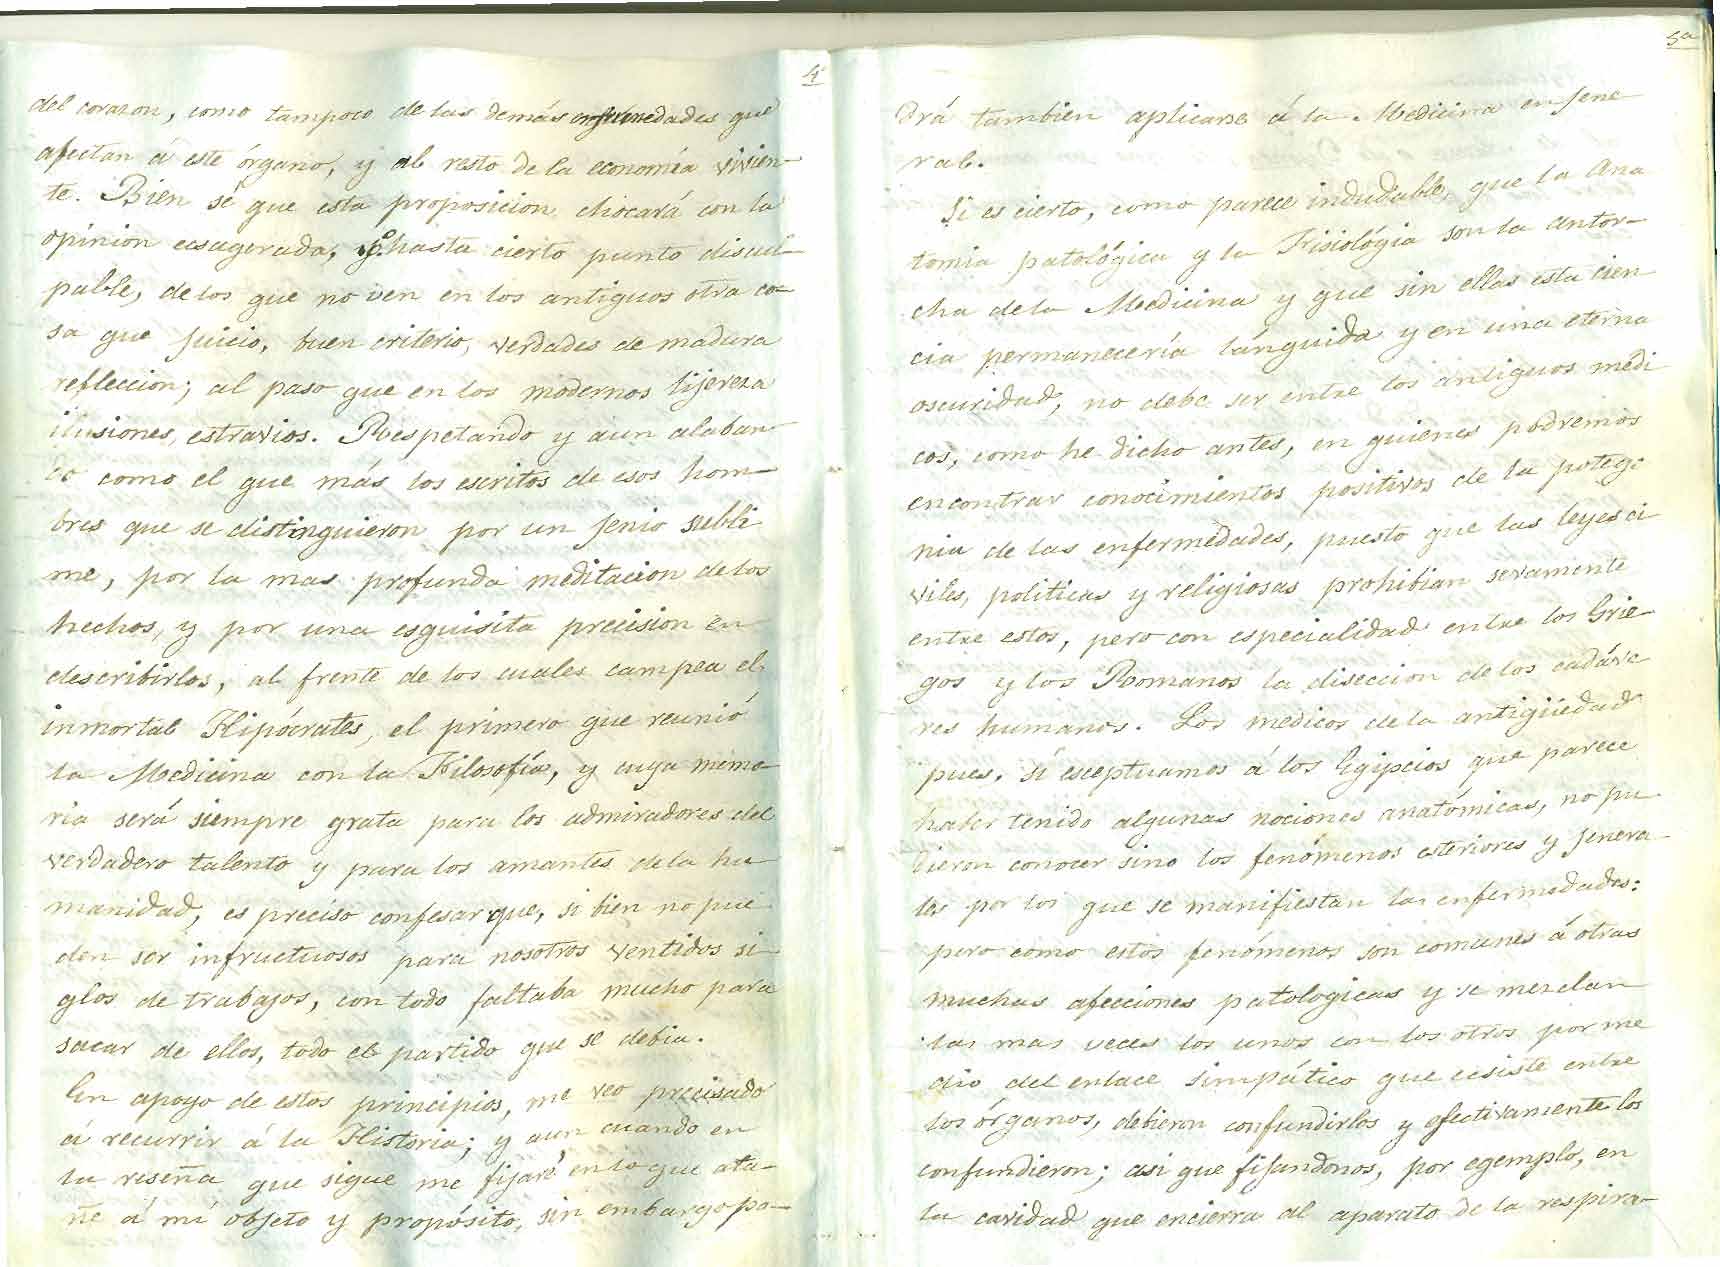 4
del corazon, como tampoco de las demás enfermedades que
afectan á este órgano, y al resto de la economía vivien-
te. Bien sé que esta proposicion chocará con la
opinion ecsagerada, hasta cierto punto discul-
pable, de los que no ven en los antiguos otra co-
sa que juicio, buen criterio, verdades de madura
refleccion; al paso que en los modernos lijereza
ilusiones, estravios. Respetando y aun alaban-
do como el que más los escritos de esos hom-
bres que se distinguieron por un jenio subli
me, por la mas profunda meditacion de los
hechos, y por una esquisita precision en
describirlos, al frente de los cuales campea el
inmortal Hipócrates, el primero que reunió
la Medicina con la Filosofía, y cuya memo
ria será siempre grata para los admiradores del
verdadero talento y para los amantes de la hu
manidad, es preciso confesar que, si bien no pue
den ser infructuosos para nosotros ventidos si
glos de trabajos, con todo faltaba mucho para
sacar de ellos, todo el partido que se debia.
En apoyo de estos principios, me veo precisado
á recurrir á la Historia; y aun cuando en
la reseña que sigue me fijaré en lo que ata-
ñe á mi objeto y propósito, sin embargo po-
5a
drá tambien aplicarse á la Medicina en jene
ral.
Si es cierto, como parece indudable, que la Ana
tomia patológica y la Fisiológia son la antor-
cha de la Medicina y que sin ellas esta cien
cia permanecería lánguida y en una eterna
oscuridad, no debe ser entre los antiguos medi
cos, como he dicho antes, en quienes podremos
encontrar conocimientos positivos de la patoge
nia de las enfermedades, puesto que las leyes ci
viles, politicas y religiosas prohibian severamente
entre estos, pero con especialidad entre los Grie
gos y los Romanos la diseccion de los cadáve
res humanos. Los medicos de la antigüedad
pues, si esceptuamos á los Egipcios que parece
haber tenido algunas nociones anatómicas, no pu
dieron conocer sino los fenómenos esteriores y jenera
les por los que se manifiestan las enfermedades:
pero como estos fenómenos son comunes á otras
muchas afecciones patologicas y se mezclan
las mas veces los unos con los otros por me
dio del enlace simpático que ecsiste entre
los órganos, debieron confundirlos y efectivamente los
confundieron; asi que fijandonos, por egemplo, en
la cavidad que encierra al aparato de la respira-